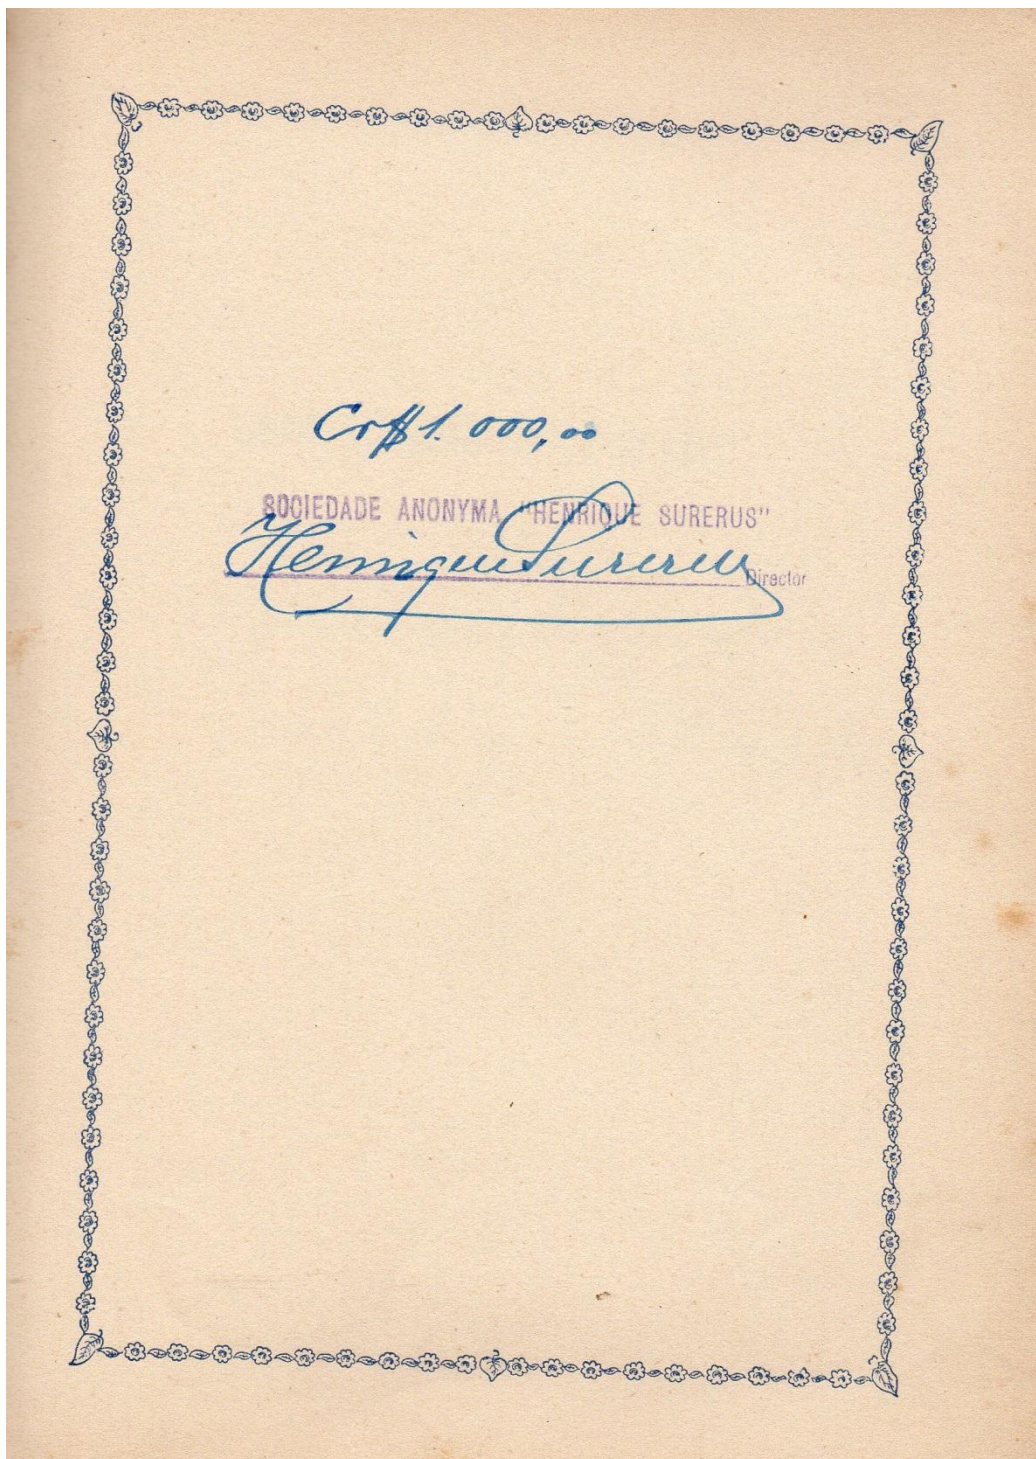 Cr$ 1.000,00
SOCIEDADE ANONYMA "HENRIQUE SURERUS"
Henrique Surerus
Director